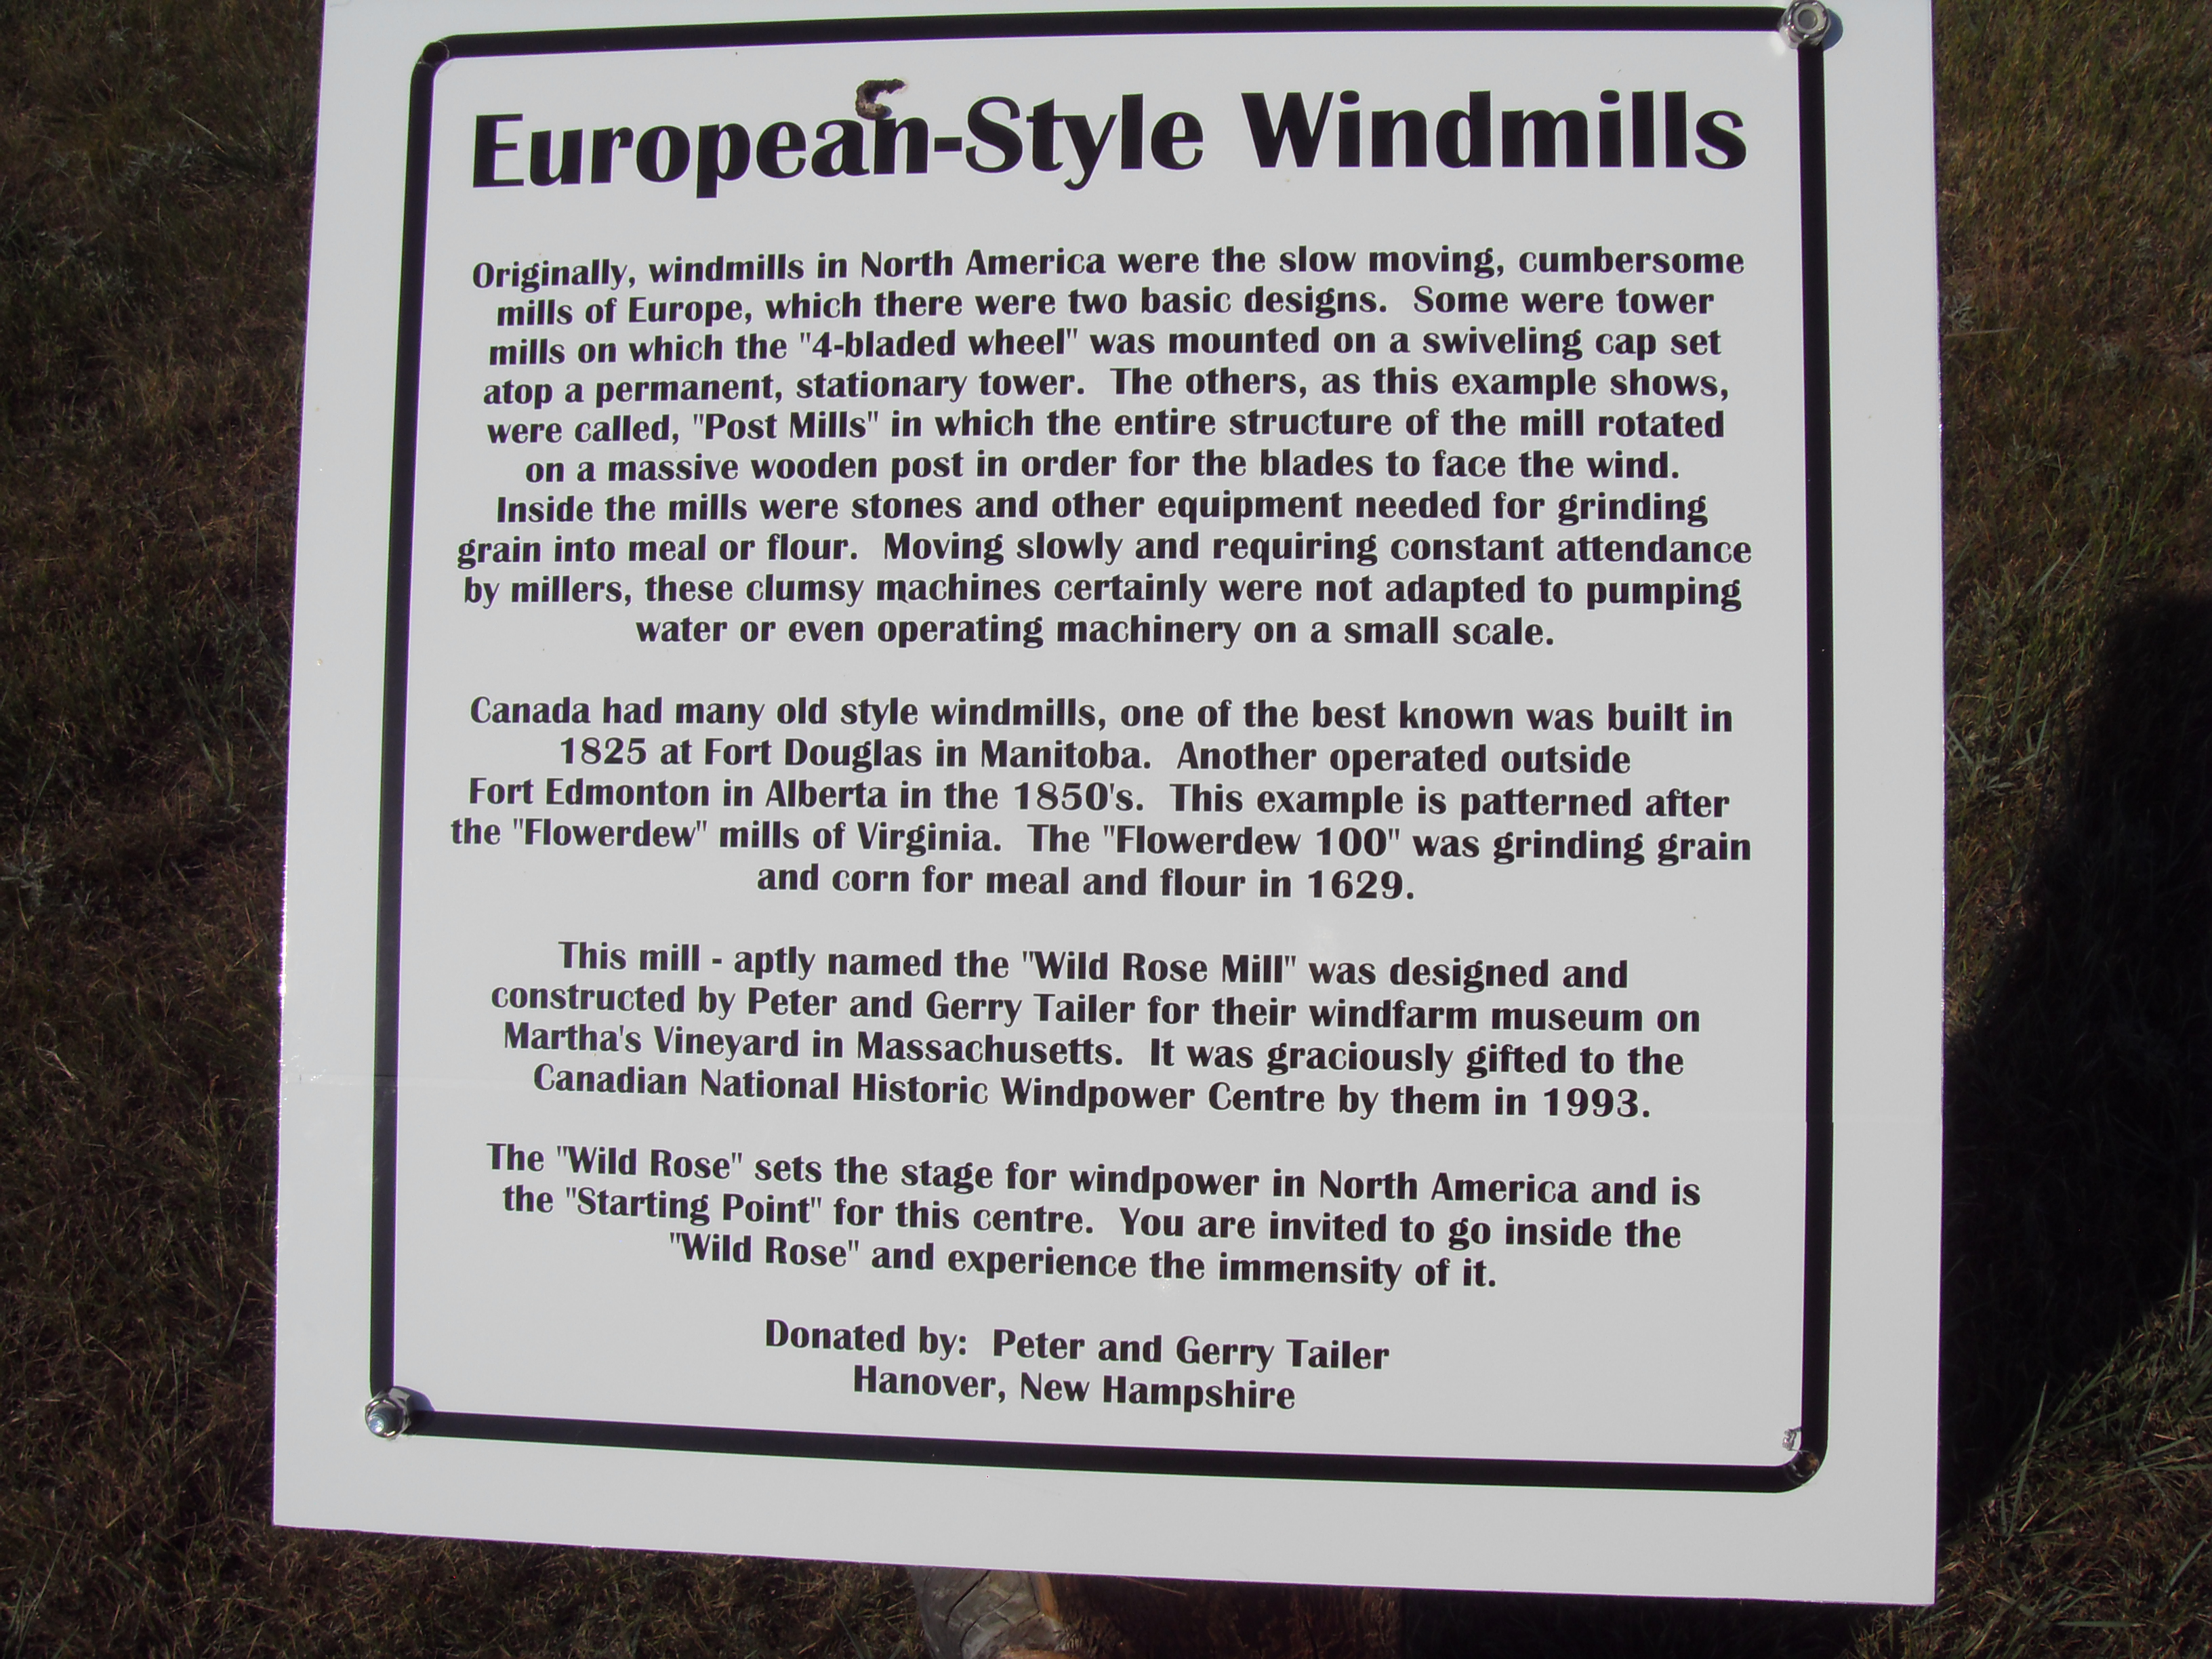 European-Style Windmills
Originally, windmills in North America were the slow moving, cumbersome
mills of Europe, which there were two basic designs.  Some were tower
mills on which the "4-bladed wheel" was mounted on a swiveling cap set
atop a permanent, stationary tower.  The others, as this example shows,
were called, "Post Mills" in which the entire structure of the mill rotated
on a massive wooden post in order for the blades to face the wind.
Inside the mills were stones and other equipment needed for grinding
grain into meal or flour.  Moving slowly and requiring constant attendance
by millers, these clumsy machines certainly were not adapted to pumping
water or even operating machinery on a small scale.
Canada had many old style windmills, one of the best known was built in
1825 at Fort Douglas in Manitoba.  Another operated outside
Fort Edmonton in Alberta in the 1850's.  This example is patterned after
the "Flowerdew" mills of Virginia.  The "Flowerdew 100" was grinding grain
and corn for meal and flour in 1629.
This mill - aptly named the "Wild Rose Mill" was designed and
constructed by Peter and Gerry Tailer for their windfarm museum on
Martha's Vineyard in Massachusetts.  It was graciously gifted to the
Canadian National Historic Windpower Centre by them in 1993.
The "Wild Rose" sets the stage for windpower in North America and is
the "Starting Point" for this centre.  You are invited to go inside the
"Wild Rose" and experience the immensity of it.
Donated by:  Peter and Gerry Tailer
Hanover, New Hampshire